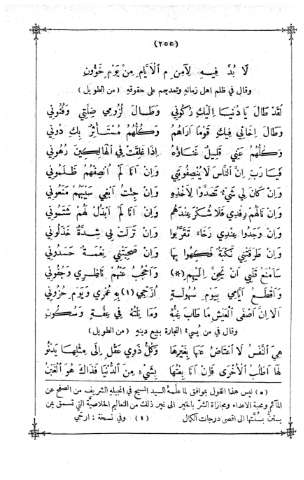 (٢٥٥)
لَا بُدَّ فِيهِ لِآمِنِ مِ الْأَيَّامِ مِنْ يَوْمٍ خَؤُونِ
وقال في ظلم اهل زمانه وتعديهم على حقوقه (من الطويل)
لَقَدْ طَالَ يَا دُنْيَا إِلَيْكِ رُكُونِي وَطَالَ لُزُومِي ضِلَّتِي وَفُتُونِي
وَطَالَ إِخَائِي فِيكِ قَوْمًا أَرَاهُمُ وَكُلُّهُمُ مُسْتَأْثِرٌ بِكِ دُونِي
وَكُلُّهُمُ عَنِّي قَلِيلٌ غَنَاؤُهُ إِذَا غَلِقَتْ فِي الْهَالِكِينَ رُهُونِي
فَيَا رَبِّ إِنَّ النَّاسَ لَا يُنْصِفُونَنِي وَإِنْ أَنَا لَمْ أُنْصِفْهُمُ ظَلَمُونِي
وَإِنْ كَانَ لِي شَيْءٌ تَصَدَّوْا لِأَخْذِهِ وَإِنْ جِئْتُ أَبْغِي سَيْبَهُمْ مَنَعُونِي
وَإِنْ نَالَهُمْ رِفْدِي فَلَا شُكْرَ عِنْدَهُمْ وَإِنْ أَنَا لَمْ أَبْذُلْ لَهُمْ شَتَمُونِي
وَإِنْ وَجَدُوا عِنْدِي رَخَاءً تَقَرَّبُوا وَإِنْ نَزَلَتْ بِي شِدَّةٌ خَذَلُونِي
وَإِنْ طَرَقَتْنِي نَكْبَةٌ فَكِهُوا بِهَا وَإِنْ صَحِبَتْنِي نِعْمَةٌ حَسَدُونِي
سَأَمْنَعُ قَلْبِي أَنْ يَحِنَّ إِلَيْهِمِ (*) وَأَحْجُبُ عَنْهُمْ نَاظِرِي وَجُفُونِي
وَأَقْطَعُ أَيَّامِي بِيَوْمِ سُهُولَةٍ أُزَجِّي (١) بِهِ عُمْرِي وَيَوْمِ حُزُونِ
أَلَا إِنَّ أَصْفَى الْعَيْشِ مَا طَابَ غِبُّهُ وَمَا نِلْتُهُ فِي عِفَّةٍ وَسُكُونِ
وقال في من يُسيء التجارة ببيع دينه (من الطويل)
هِيَ النَّفْسُ لَا أَعْتَاضُ عَنْهَا بِغَيْرِهَا وَكُلُّ ذَوِي عَقْلٍ إِلَى مِثْلِهَا يَدْنُو
لَهَا أَطْلُبُ الْأُخْرَى فَإِنْ أَنَا بِعْتُهَا بِشَيْءٍ مِنَ الدُّنْيَا فَذَاكَ هُوَ الْغَبْنُ
(* ليس هذا القول بموافق لما علّمهُ السيد المسيح في انجيلهِ الشريف من الصفح عن
الغريم ومحبة الاعداء ومجازاة الشرّ بالخير الى غير ذلك من التعاليم الخلاصيَّة التي تسمو بمن
يستنّ بسنّتها الى اقصى درجات الكمال (١) وفي نسخة: ارجي